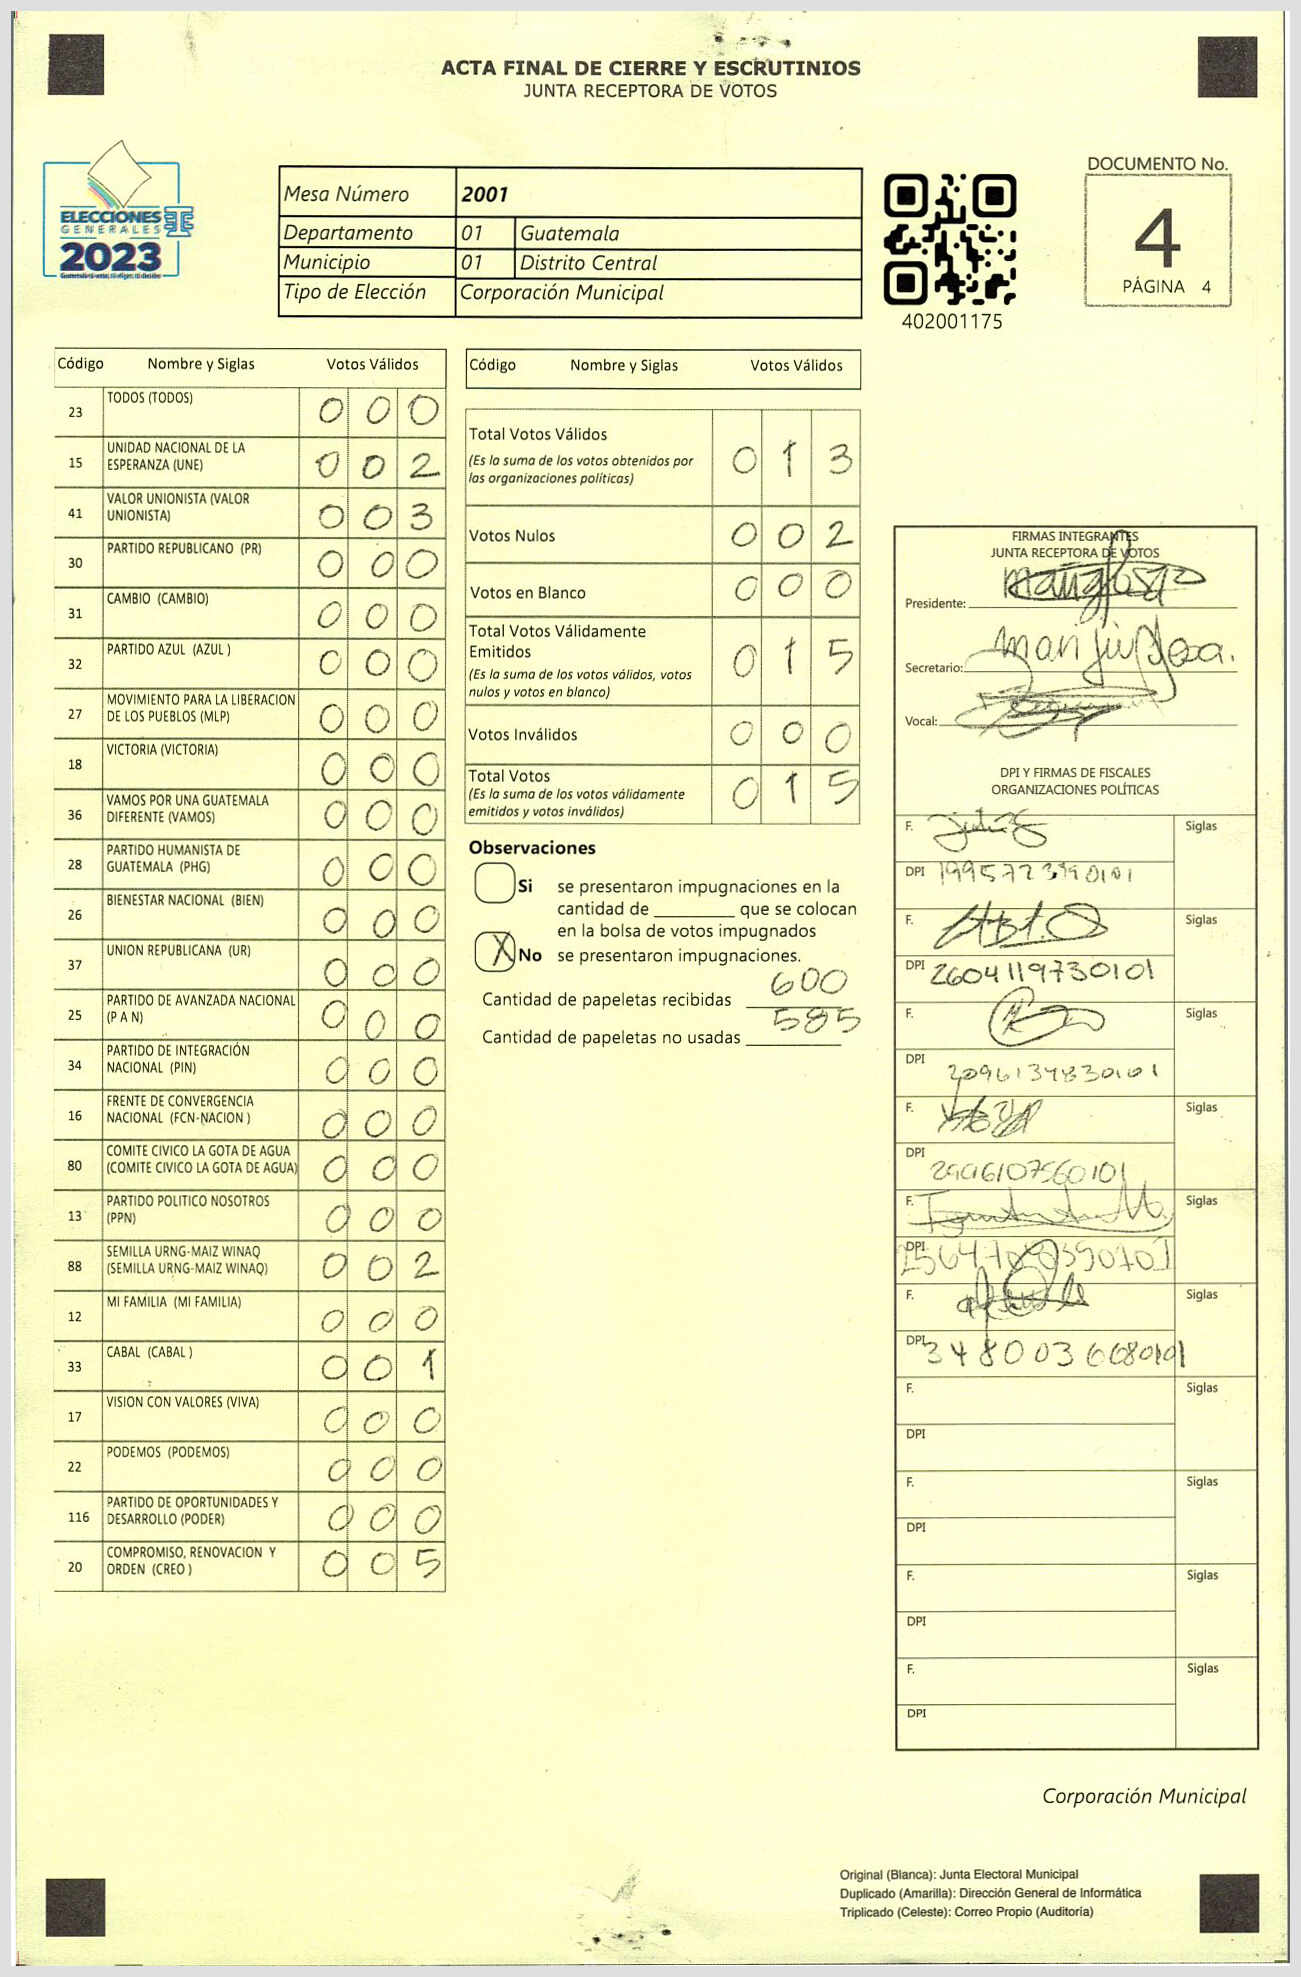 ACTA FINAL DE CIERRE Y ESCRUTINIOS
JUNTA RECEPTORA DE VOTOS
ELECCIONES
GENERALES
2023
Mesa Número 2001
Departamento 01 Guatemala
Municipio 01 Distrito Central
Tipo de Elección Corporación Municipal
402001175
DOCUMENTO No.
4
PÁGINA 4
Código Nombre y Siglas Votos Válidos
23 TODOS (TODOS) 0 0 0
15 UNIDAD NACIONAL DE LA
ESPERANZA (UNE) 0 0 2
41 VALOR UNIONISTA (VALOR
UNIONISTA) 0 0 3
30 PARTIDO REPUBLICANO (PR) 0 0 0
31 CAMBIO (CAMBIO) 0 0 0
32 PARTIDO AZUL (AZUL ) 0 0 0
27 MOVIMIENTO PARA LA LIBERACION
DE LOS PUEBLOS (MLP) 0 0 0
18 VICTORIA (VICTORIA) 0 0 0
36 VAMOS POR UNA GUATEMALA
DIFERENTE (VAMOS) 0 0 0
28 PARTIDO HUMANISTA DE
GUATEMALA (PHG) 0 0 0
26 BIENESTAR NACIONAL (BIEN) 0 0 0
37 UNION REPUBLICANA (UR) 0 0 0
25 PARTIDO DE AVANZADA NACIONAL
(P A N) 0 0 0
34 PARTIDO DE INTEGRACIÓN
NACIONAL (PIN) 0 0 0
16 FRENTE DE CONVERGENCIA
NACIONAL (FCN-NACION ) 0 0 0
80 COMITE CIVICO LA GOTA DE AGUA
(COMITE CIVICO LA GOTA DE AGUA) 0 0 0
13 PARTIDO POLITICO NOSOTROS
(PPN) 0 0 0
88 SEMILLA URNG-MAIZ WINAQ
(SEMILLA URNG-MAIZ WINAQ) 0 0 2
12 MI FAMILIA (MI FAMILIA) 0 0 0
33 CABAL (CABAL ) 0 0 1
17 VISION CON VALORES (VIVA) 0 0 0
22 PODEMOS (PODEMOS) 0 0 0
116 PARTIDO DE OPORTUNIDADES Y
DESARROLLO (PODER) 0 0 0
20 COMPROMISO, RENOVACION Y
ORDEN (CREO ) 0 0 5
Código Nombre y Siglas Votos Válidos
Total Votos Válidos 0 1 3
(Es la suma de los votos obtenidos por
las organizaciones políticas)
Votos Nulos 0 0 2
Votos en Blanco 0 0 0
Total Votos Válidamente
Emitidos 0 1 5
(Es la suma de los votos válidos, votos
nulos y votos en blanco)
Votos Inválidos 0 0 0
Total Votos 0 1 5
(Es la suma de los votos válidamente
emitidos y votos inválidos)
Observaciones
Si se presentaron impugnaciones en la
cantidad de ________ que se colocan
en la bolsa de votos impugnados
X No se presentaron impugnaciones.
Cantidad de papeletas recibidas 600
Cantidad de papeletas no usadas 585
FIRMAS INTEGRANTES
JUNTA RECEPTORA DE VOTOS
Presidente:
Secretario:
Vocal:
DPI Y FIRMAS DE FISCALES
ORGANIZACIONES POLÍTICAS
F. Siglas
DPI
F. Siglas
DPI 2604119730101
F. Siglas
DPI 2096134830101
F. Siglas
DPI 2996107560101
F. Siglas
DPI
F. Siglas
DPI 3480036680101
F. Siglas
DPI
F. Siglas
DPI
F. Siglas
DPI
F. Siglas
DPI
Corporación Municipal
Original (Blanca): Junta Electoral Municipal
Duplicado (Amarilla): Dirección General de Informática
Triplicado (Celeste): Correo Propio (Auditoría)